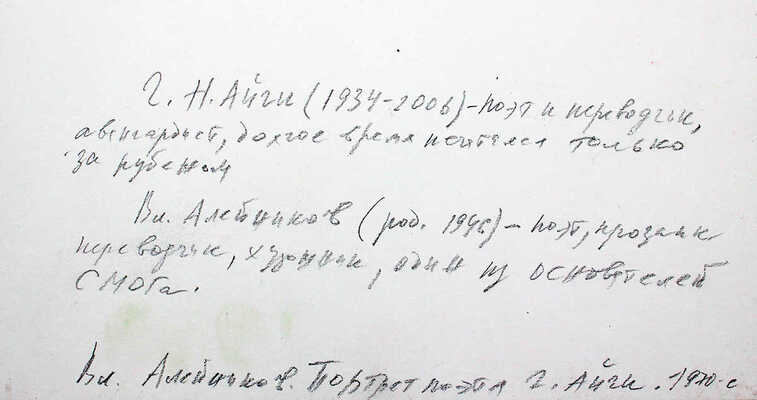 Г. Н. Айги (1934-2006) - поэт и переводчик,
авангардист, долгое время печатался только
за рубежом
Вл. Алейников (род. 1946) - поэт, прозаик
переводчик, художник, один из основателей
СМОГа.
Вл. Алейников. Портрет поэта Г. Айги. 1970-е